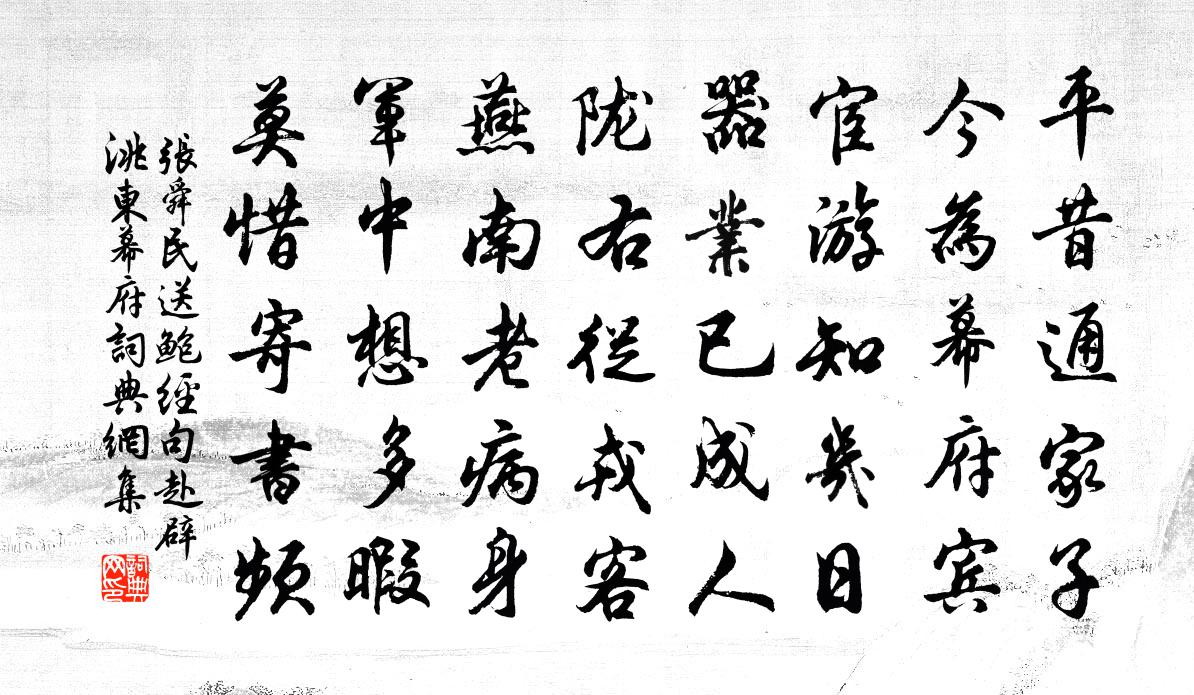 平昔通家子
今為幕府宾
宦游知幾日
器業已成人
陇右從戎客
燕南老病身
軍中想多暇
莫惜寄書频
張舜民送鮑經句赴辟
洮東幕府詞典網集
詞典
网印